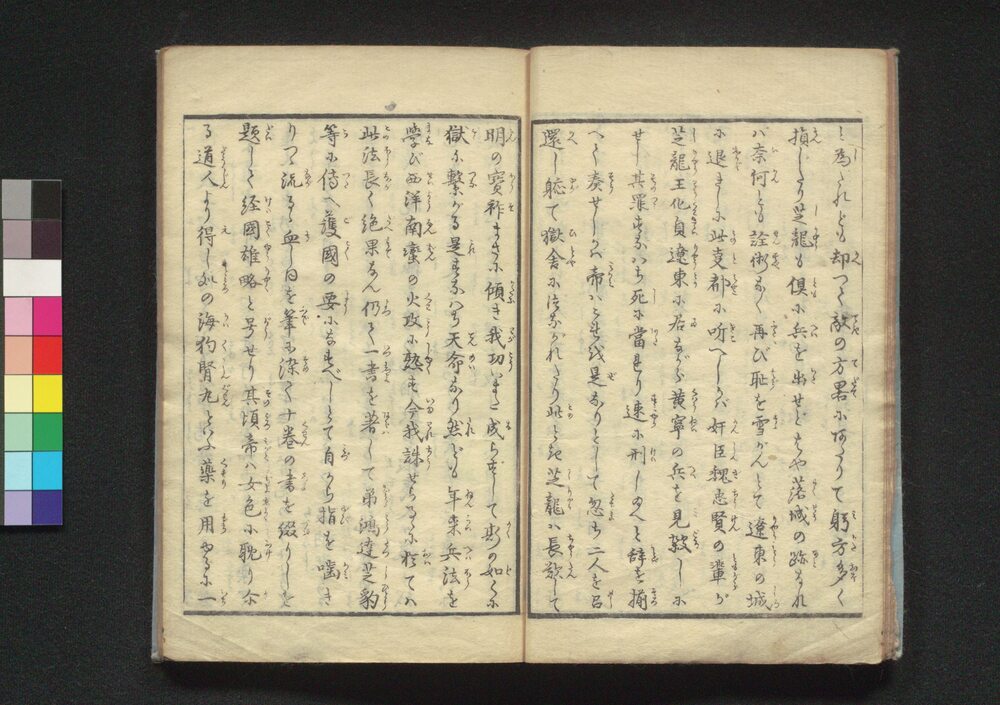 と為されども却つて敵の方畧に陥りて躬方多く
損じたり芝龍も倶に兵を出せどもはや落城の跡なれ
バ奈何とも詮術なく再び恥を雪がんとて遼東の城
に退きしに此支郡に听へしかバ奸臣魏忠賢の輩が
芝龍王化貞遼東に居ながら黄寧の兵を見殺しに
せし其罪すなはち死に當れり速に刑し給へと辞を揃
へて奏せしかバ帝ハとも是なりとして忽ち二人を召
還し軈て獄舎に繋がれたり此とき芝龍ハ長歎して
明の寳祚まさに傾き我功いまだ成らずして斯の如くに
獄に繋がる是すなハち天命なり然ども年来兵法を
学び西洋南蛮の火攻に熟す今我誅せらるゝに於てハ
此法長く絶果なん仍て一書を著して弟鴻達芝豹
等に傳へ護國の要になすべしとて自から指を噛き
りつゝ流るゝ血しほを筆に染て十巻の書を綴りしを
題して経國雄略と号せり其頃帝ハ女色に耽り給
る道人より得し処の海狗腎丸といふ薬を用ゆるに一